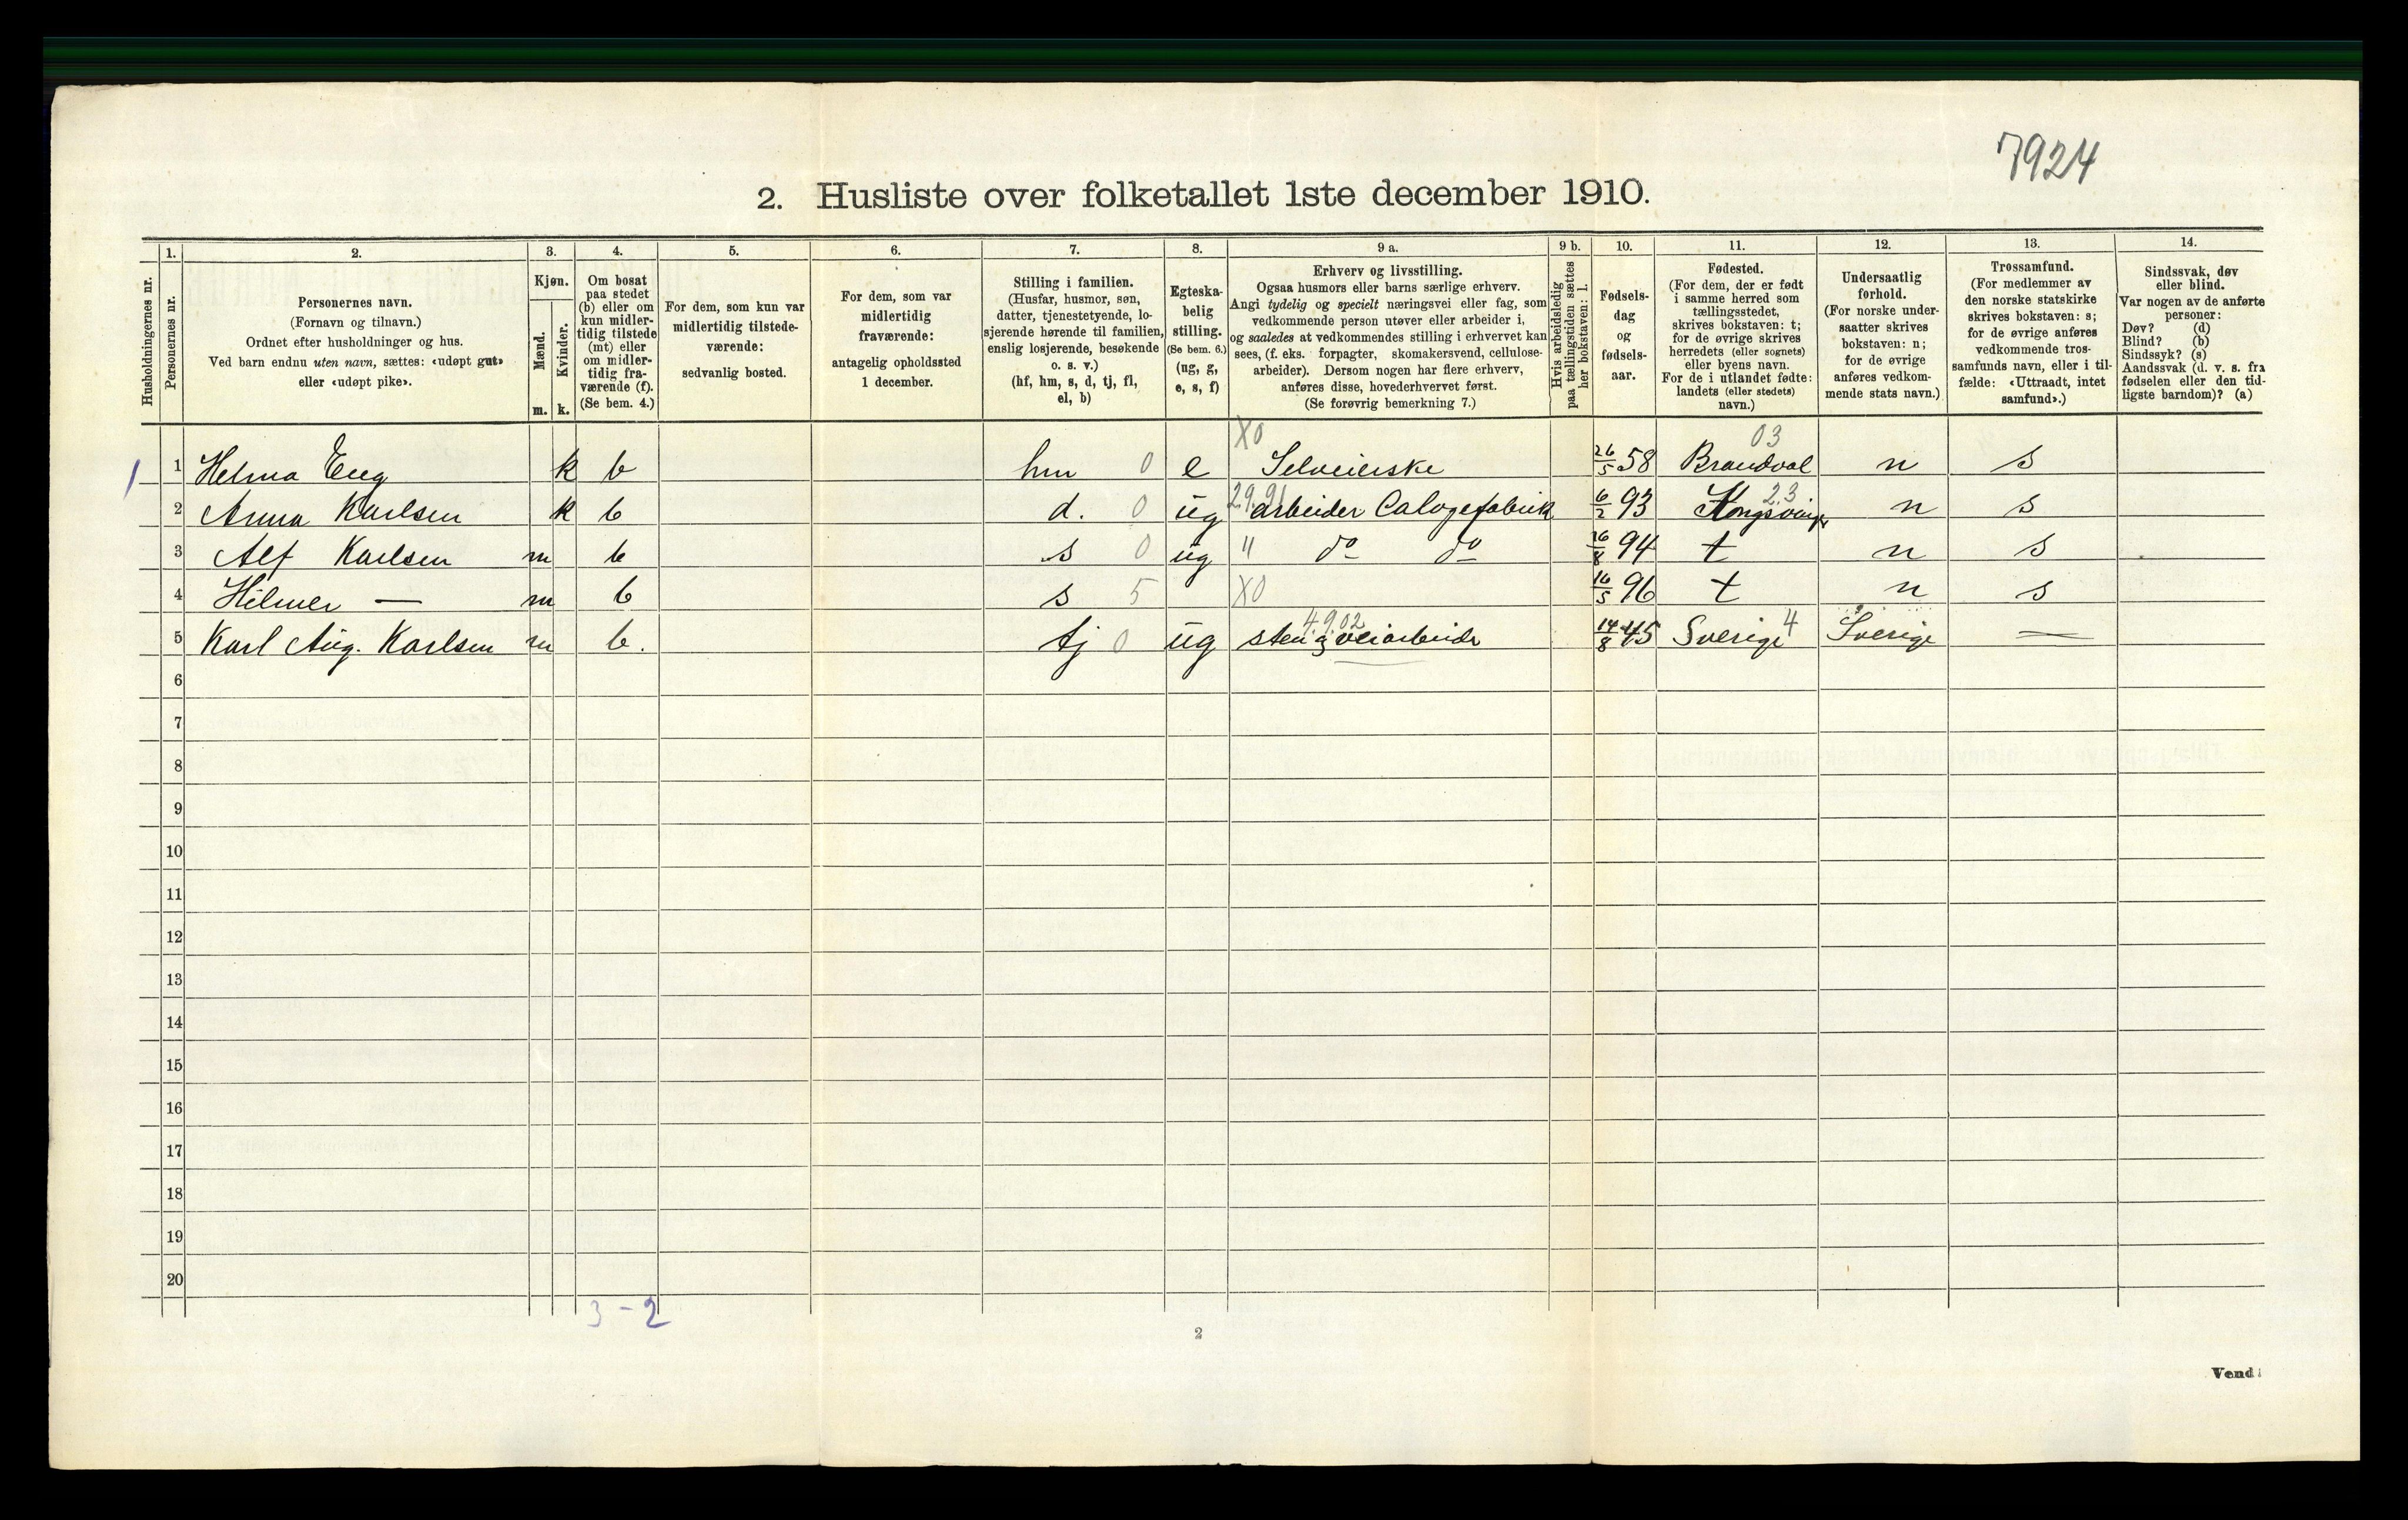 7924
2. Husliste over folketallet 1ste december 1910.
Husholdningernes nr.
1. Personernes nr.
2. Personernes navn.
(Fornavn og tilnavn.)
Ordnet efter husholdninger og hus.
Ved barn endnu uten navn, sættes: «udøpt gut»
eller «udøpt pike».
3. Kjøn.
Mænd. m.
Kvinder. k.
4. Om bosat
paa stedet
(b) eller om
kun midler-
tidig tilstede
(mt) eller
om midler-
tidig fra-
værende (f).
(Se bem. 4.)
5. For dem, som kun var
midlertidig tilstede-
værende:
sedvanlig bosted.
6. For dem, som var
midlertidig
fraværende:
antagelig opholdssted
1 december.
7. Stilling i familien.
(Husfar, husmor, søn,
datter, tjenestetyende, lo-
sjerende hørende til familien,
enslig losjerende, besøkende
o. s. v.)
(hf, hm, s, d, tj, fl,
el, b)
8. Egteska-
belig
stilling.
(Se bem. 6.)
(ug, g,
e, s, f)
9 a. Erhverv og livsstilling.
Ogsaa husmors eller barns særlige erhverv.
Angi tydelig og specielt næringsvei eller fag, som
vedkommende person utøver eller arbeider i,
og saaledes at vedkommendes stilling i erhvervet kan
sees, (f. eks. forpagter, skomakersvend, cellulose-
arbeider). Dersom nogen har flere erhverv,
anføres disse, hovederhvervet først.
(Se forøvrig bemerkning 7.)
9 b. Hvis arbeidsledig
paa tællingstiden sættes
her bokstaven: l.
10. Fødsels-
dag
og
fødsels-
aar.
11. Fødested.
(For dem, der er født
i samme herred som
tællingsstedet,
skrives bokstaven: t;
for de øvrige skrives
herredets (eller sognets)
eller byens navn.
For de i utlandet fødte:
landets (eller stedets)
navn.)
12. Undersaatlig
forhold.
(For norske under-
saatter skrives
bokstaven: n;
for de øvrige
anføres vedkom-
mende stats navn.)
13. Trossamfund.
(For medlemmer av
den norske statskirke
skrives bokstaven: s;
for de øvrige anføres
vedkommende tros-
samfunds navn, eller i til-
fælde: «Uttraadt, intet
samfund».)
14. Sindssvak, døv
eller blind.
Var nogen av de anførte
personer:
Døv? (d)
Blind? (b)
Sindssyk? (s)
Aandssvak (d. v. s. fra
fødselen eller den tid-
ligste barndom)? (a)
X0 03
1 1 Helma Eng k b hm 0 e Selveierske 26/5 58 Brandval n s
2 Anna Karlsen k b d. 0 ug 29.91 arbeider Calogefabrik 6/2 93 Kongsvinger 23 n s
3 Alf Karlsen m b s 0 ug " do do 16/8 94 t n s
4 Hilmer — m b s 5 X0 16/5 96 t n s
5 Karl Aug. Karlsen m b. tj 0 ug 4.9.02 sten g veiarbeide 14/8 45 Sverige 4 Sverige —
6
7
8
9
10
11
12
13
14
15
16
17
18
19
20
3 - 2
2
Vend!